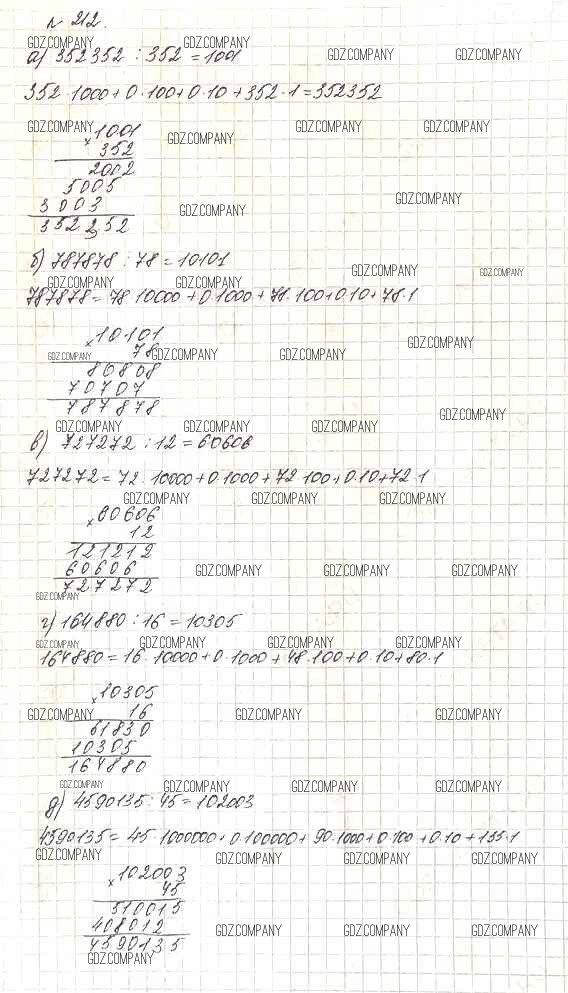 № 212.
GDZ.COMPANY GDZ.COMPANY
а) 352352 : 352 = 1001 GDZ.COMPANY GDZ.COMPANY
352·1000+0·100+0·10+352·1=352352
GDZ.COMPANY GDZ.COMPANY GDZ.COMPANY
×1001 GDZ.COMPANY
352
2002
5005
3003 GDZ.COMPANY GDZ.COMPANY
352352
б) 787878 : 78 = 10101 GDZ.COMPANY GDZ.COMPANY
GDZ.COMPANY GDZ.COMPANY
787878 = 78·10000+0·1000+78·100+0·10+78·1
×10101 GDZ.COMPANY
78 GDZ.COMPANY GDZ.COMPANY GDZ.COMPANY
80808
70707
787878 GDZ.COMPANY
GDZ.COMPANY GDZ.COMPANY GDZ.COMPANY
в) 727272 : 12 = 60606
727272 = 72·10000+0·1000+72·100+0·10+72·1
GDZ.COMPANY GDZ.COMPANY GDZ.COMPANY
×60606
12
121212
60606 GDZ.COMPANY GDZ.COMPANY GDZ.COMPANY
727272
GDZ.COMPANY
г) 164880 : 16 = 10305
GDZ.COMPANY GDZ.COMPANY GDZ.COMPANY GDZ.COMPANY
164880 = 16·10000+0·1000+48·100+0·10+80·1
×10305
16 GDZ.COMPANY GDZ.COMPANY GDZ.COMPANY
61830
10305
164880
GDZ.COMPANY GDZ.COMPANY GDZ.COMPANY GDZ.COMPANY
д) 4590135 : 45 = 102003
4590135 = 45·1000000+0·100000+90·1000+0·100+0·10+135·1
GDZ.COMPANY GDZ.COMPANY GDZ.COMPANY GDZ.COMPANY
×102003
45
510015
408012 GDZ.COMPANY GDZ.COMPANY GDZ.COMPANY
4590135
GDZ.COMPANY